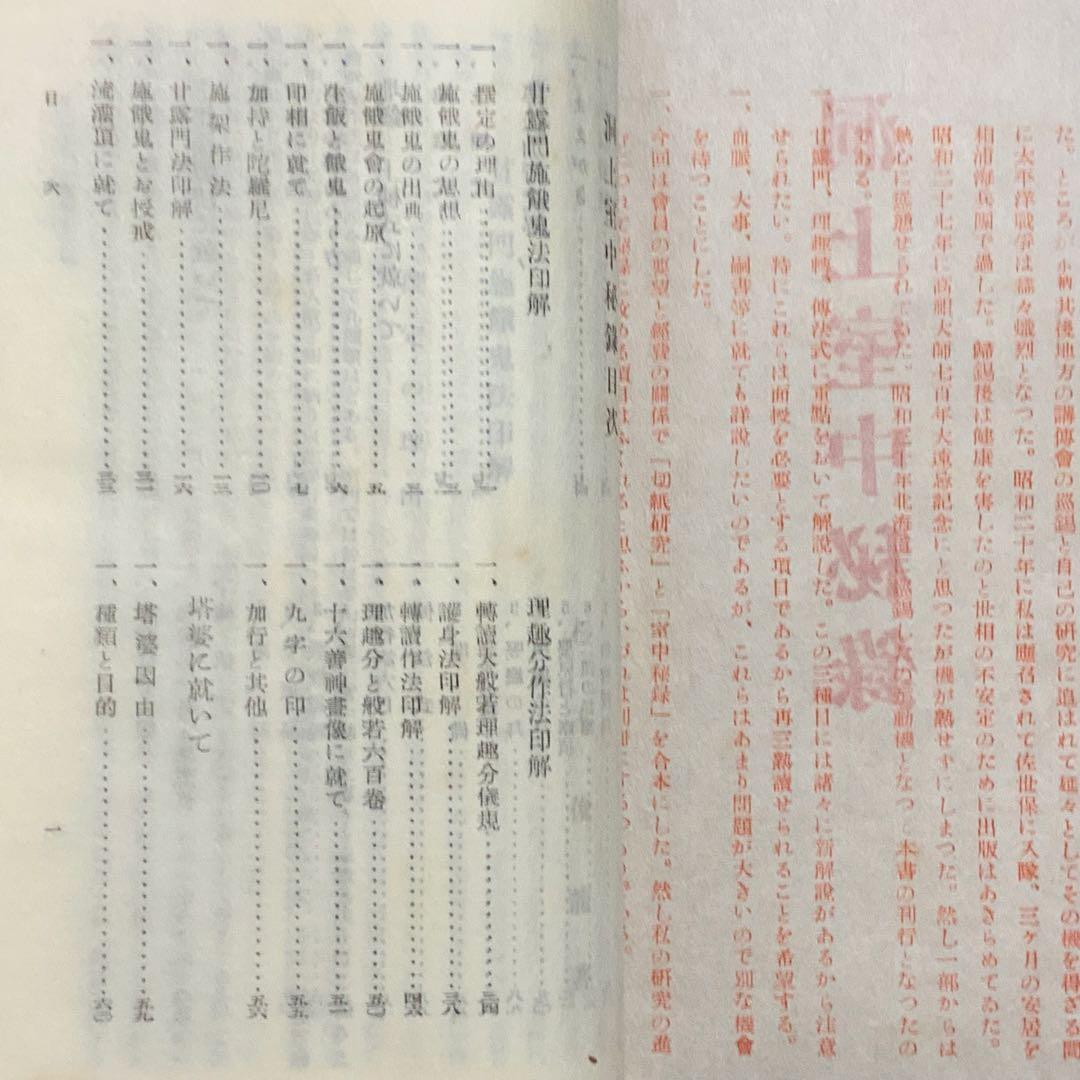 た。ところが小衲其後地方の講傳會の巡錫と自己の研究に追はれて延々としてその機を得ざる間
に太平洋戰爭は益々熾烈となつた。昭和二十年に私は應召されて佐世保に入隊、三ヶ月の安居を
相浦海兵團で過した。歸錫後は健康を害したのと世相の不安定のために出版はあきらめてゐた。
昭和二十七年に高祖大師七百年大遠忌記念にと思つたが機が熟せずにしまつた。然し一部からは
熱心に慫慂せられ
昭和三十年北海道
動機となつて本書の刊行となつたの
である。
一、甘露門、理趣轉、傳法式に重點をおいて解說した。この三種目には諸々に新解說があるから注意
せられたい。特にこれらは面授を必要とする項目であるから再三熟讀せられることを希望する。
一、血脈、大事、嗣書等に就ても詳說したいのであるが、これらはあまり問題が大きいので別な機會
を待つことにした。
一、今回は會員の要望と經費の關係で「切紙硏究」と「室中秘録」を合本にした。然し私の硏究の進
洞上室中秘錄
洞上室中秘錄目次
甘露門施餓鬼法印解
一、撰定の理由……一
一、施餓鬼の思想……三
一、施餓鬼の出典……三
一、施餓鬼會の起原……五
一、生飯と餓鬼……六
一、印相に就て……七
一、加持と陀羅尼……一〇
一、施架作法……一三
一、甘露門法印解……一六
一、施餓鬼とお授戒……三一
一、流灌頂に就て……三三
理趣分作法印解
一、轉讀大般若理趣分儀規……三四
一、護身法印解……三八
一、轉讀作法印解……四六
一、理趣分と般若六百卷……五〇
一、十六善神畫像に就て……五一
一、九字の印……五五
一、加行と其他……五六
塔婆に就いて
一、塔婆因由……五九
一、種類と目的……六〇
目次
一